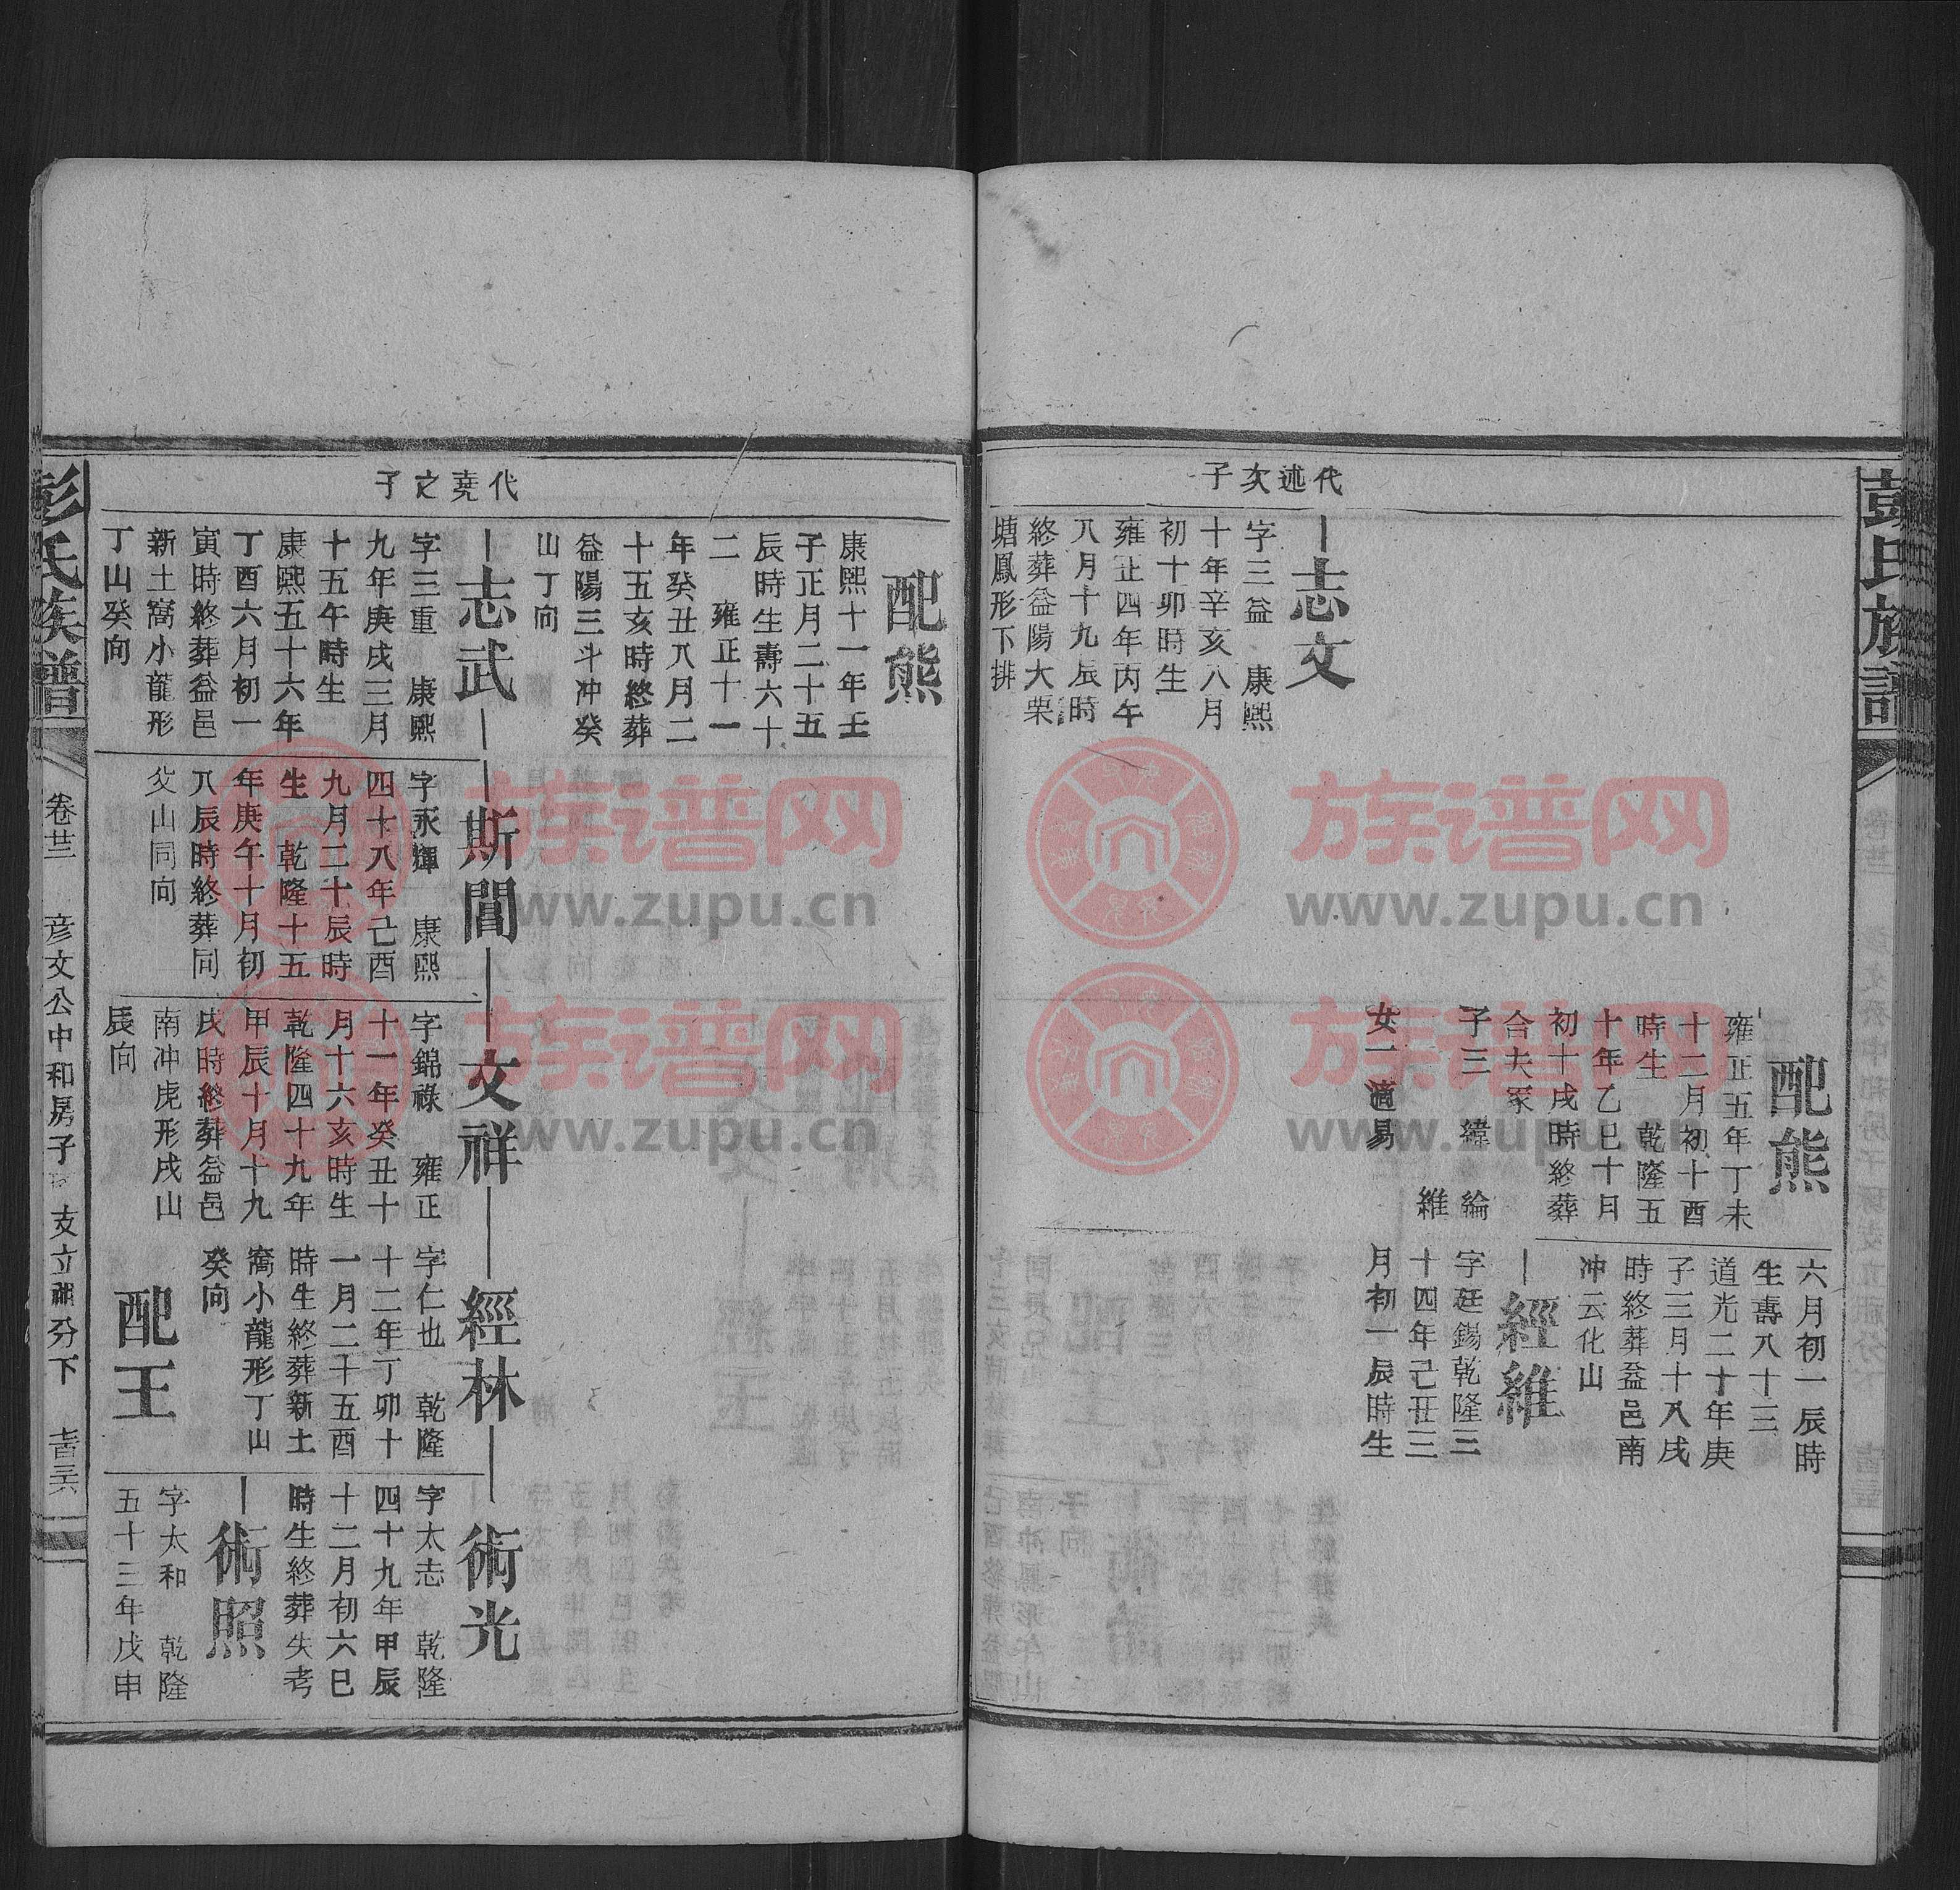 彭氏族譜
代述次子
志文
字三益　康熙
十年辛亥八月
初十卯時生
雍正四年丙午
八月十九辰時
終葬益陽大栗
塘鳳形下排
配熊
雍正五年丁未
十二月初十酉
時生　乾隆五
十年乙巳十月
初十戌時終葬
合夫冢
子三　緯　綸
維
女一適易
六月初一辰時
生壽八十三
道光二十年庚
子三月十八戌
時終葬益邑南
冲云化山
經維
字廷錫乾隆三
十四年己丑三
月初一辰時生
代堯之子
配熊
康熙十一年壬
子正月二十五
辰時生壽六十
二　雍正十一
年癸丑八月二
十五亥時終葬
益陽三斗冲癸
山丁向
志武
字三重　康熙
九年庚戌三月
十五午時生
康熙五十六年
丁酉六月初一
寅時終葬益邑
新土窩小龍形
丁山癸向
斯閶
字永輝　康熙
四十八年己酉
九月二十辰時
生　乾隆十五
年庚午十月初
八辰時終葬同
父山同向
文祥
字錦祿　雍正
十一年癸丑十
月十六亥時生
乾隆四十九年
甲辰十月十九
戌時終葬益邑
南冲虎形戌山
辰向
經林
字仁也　乾隆
十二年丁卯十
一月二十五酉
時生終葬新土
窩小龍形丁山
癸向
配王
術光
字太志　乾隆
四十九年甲辰
十二月初六巳
時生終葬失考
術照
字太和　乾隆
五十三年戊申
彭氏族譜
卷廿三
彦文公中和房子
支立祖分下
族谱网
www.zupu.cn
族谱网
www.zupu.cn
族谱网
www.zupu.cn
族谱网
www.zupu.cn